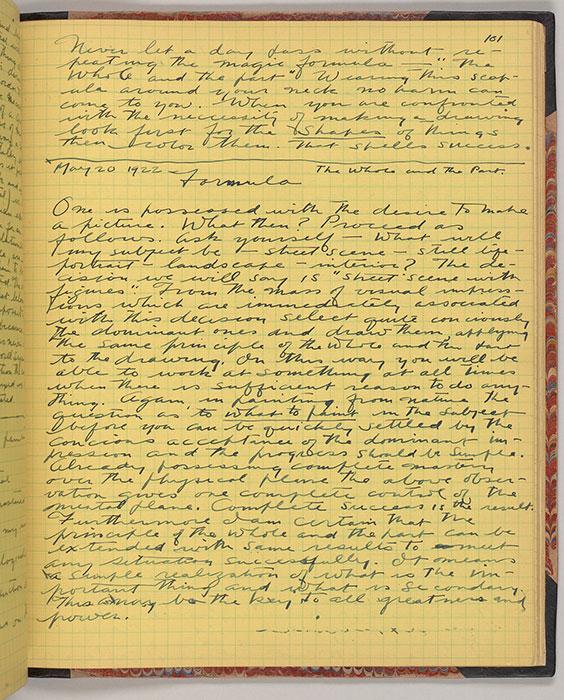 101
Never let a day pass without re-
peating the magic formula — "The
Whole and the part" Wearing this scap-
ula around your neck no harm can
come to you. When you are confronted
with the necessity of making a drawing
look first for the shapes of things
then color them. That spells success.
May 20 1922 The Whole and the Part.
Formula
One is possessed with the desire to make
a picture. What then? Proceed as
follows. ask yourself — What will
my subject be — street scene — still life —
portrait — landscape — interior? The de-
cission we will say is "street scene with
figures". From the mass of visual impress-
ions which are immediately associated
with this decision select quite conciously
the dominant ones and draw them applying
the same principle of the whole and the part
to the drawing. In this way you will be
able to work at something at all times
when there is sufficient reason to do any-
thing. Again, in painting from nature the
question as to what to paint in the subject
before you can be quickly settled by the
concious acceptance of the dominant im-
pression and the progress should be simple.
Already possessing complete mastery
over the physical plane the above obser-
vation gives one complete control of the
mental plane. Complete success is the result.
Furthermore I am certain that the
principle of the whole and the part can be
extended with same results to meet
any situation successfully. It means
a simple realization of what is the im-
portant thing and what is secondary.
This may be the key to all greatness and
power.